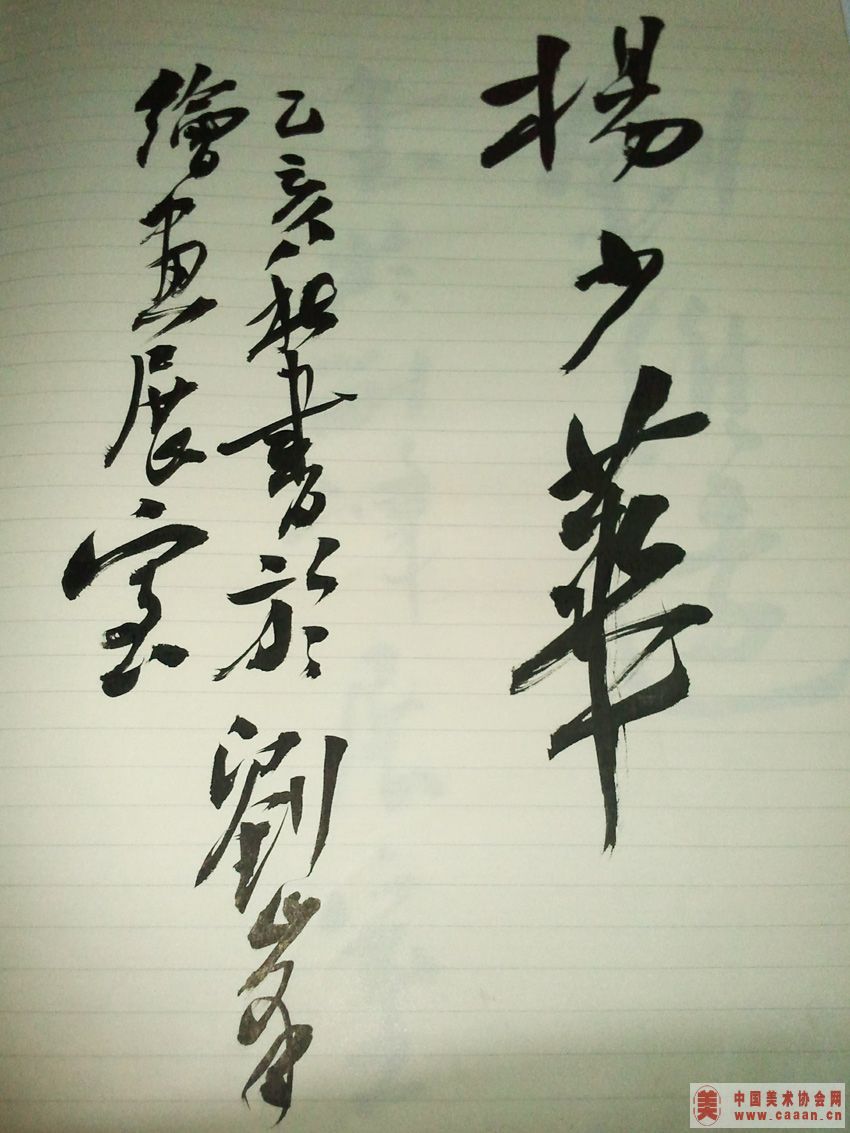 楊少華
己亥秋書於劉峯
繪畫展室
美 中国美术协会网
www.caaan.cn